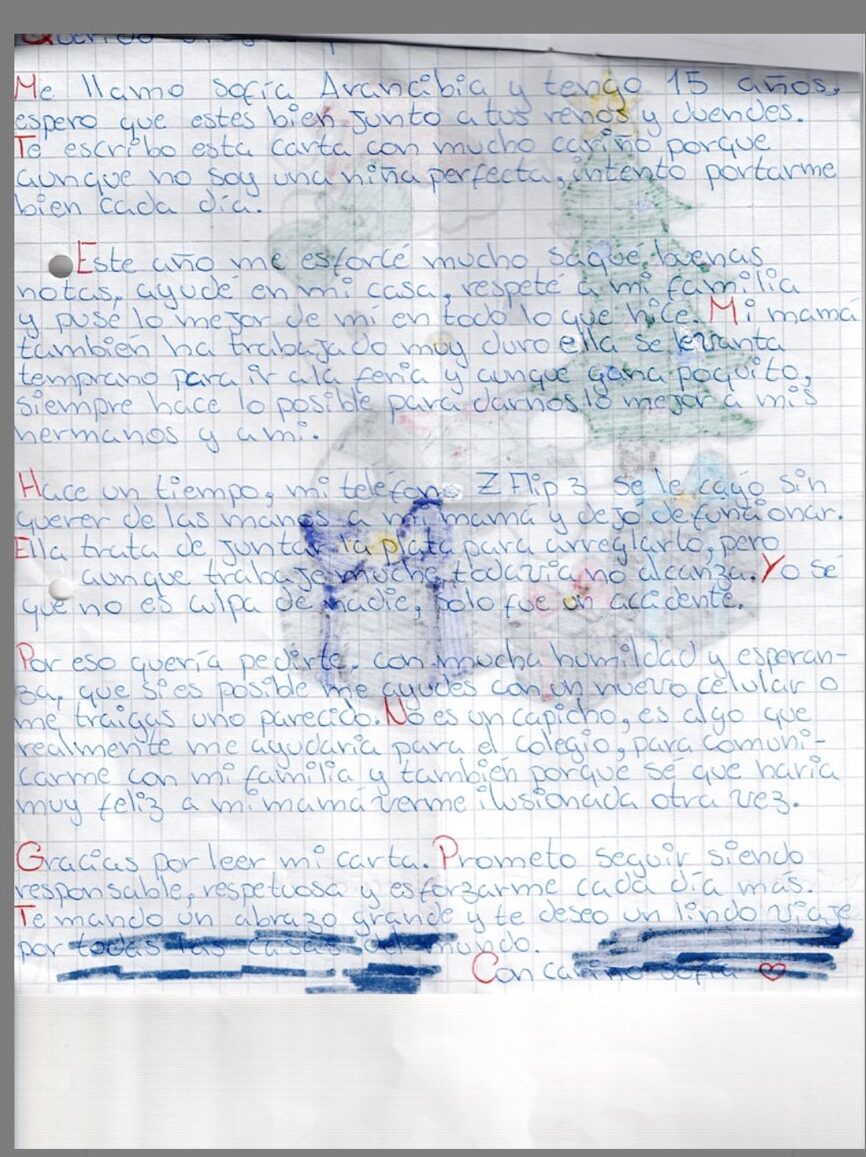 Querido
Me llamo Sofía Arancibia y tengo 15 años,
espero que estés bien junto a tus renos y duendes.
Te escribo esta carta con mucho cariño porque
aunque no soy una niña perfecta, intento portarme
bien cada día.
Este año me esforcé mucho saqué buenas
notas, ayudé en mi casa, respeté a mi familia
y puse lo mejor de mí en todo lo que hice. Mi mamá
también ha trabajado muy duro ella se levanta
temprano para ir a la feria y aunque gana poquito,
siempre hace lo posible para darnos lo mejor a mis
hermanos y a mi.
Hace un tiempo, mi teléfono Z Flip 3 se le cayó sin
querer de las manos a mi mamá y dejó de funcionar.
Ella trata de juntar la plata para arreglarlo, pero
aunque trabaja mucho todavía no alcanza. Yo sé
que no es culpa de nadie, solo fue un accidente.
Por eso quería pedirte, con mucha humildad y esperan-
za, que si es posible me ayudes con un nuevo celular o
me traigas uno parecido. No es un capicho, es algo que
realmente me ayudaría para el colegio, para comuni-
carme con mi familia y también porque sé que haría
muy feliz a mi mamá verme ilusionada otra vez.
Gracias por leer mi carta. Prometo seguir siendo
responsable, respetuosa y esforzarme cada día más.
Te mando un abrazo grande y te deseo un lindo viaje
por todas las casas del mundo.
Con cariño sofía ♡